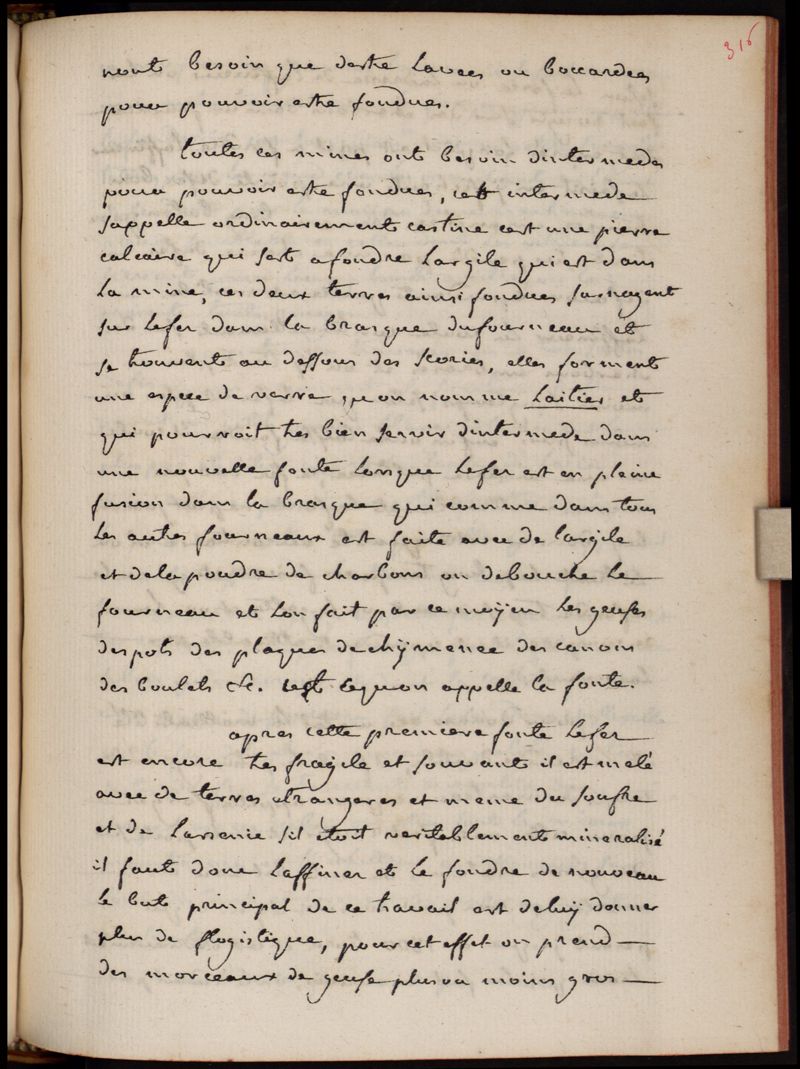 316
nont besoin que destre Lavees ou boccardees
pour pouvoir estre fondues.
toutes ces mines ont besoin dintermedes
pour pouvoir estre fondues, cet intermede
sappelle ordinairement castine cest une pierre
calcaire qui sert a fondre Largile qui est dans
La mine, ces deux terres ainsi fondues surnagent
sur Lefer dans la brasque dufourneau et
se trouvent au dessous des scories, elles forment
une espece de verre quon nomme Laitier et
qui pourroit tres bien servir dintermede dans
une nouvelle fonte Lorsque Lefer est en pleine
fusion dans la brasque qui comme dans tous
Les autres fourneaux est faite avec de largile
et dela poudre de charbons on debouche Le
fourneau et Lon fait par ce moyen Les geuses
des pots des plaques de chymenee des canons
des boulets &c. cest cequon appelle la fonte.
apres cette premiere fonte Lefer
est encore tres fragile et souvant il est melé
avec de terres etrangeres et meme du soufre
et de Larsenic sil etoit veritablement mineralisé
il faut donc Laffiner et Le fondre de nouveau
Le but principal de ce travail est deluy donner
plus de flogistique, pour cet effet on prend
des morceaux de geuse plus ou moins gros